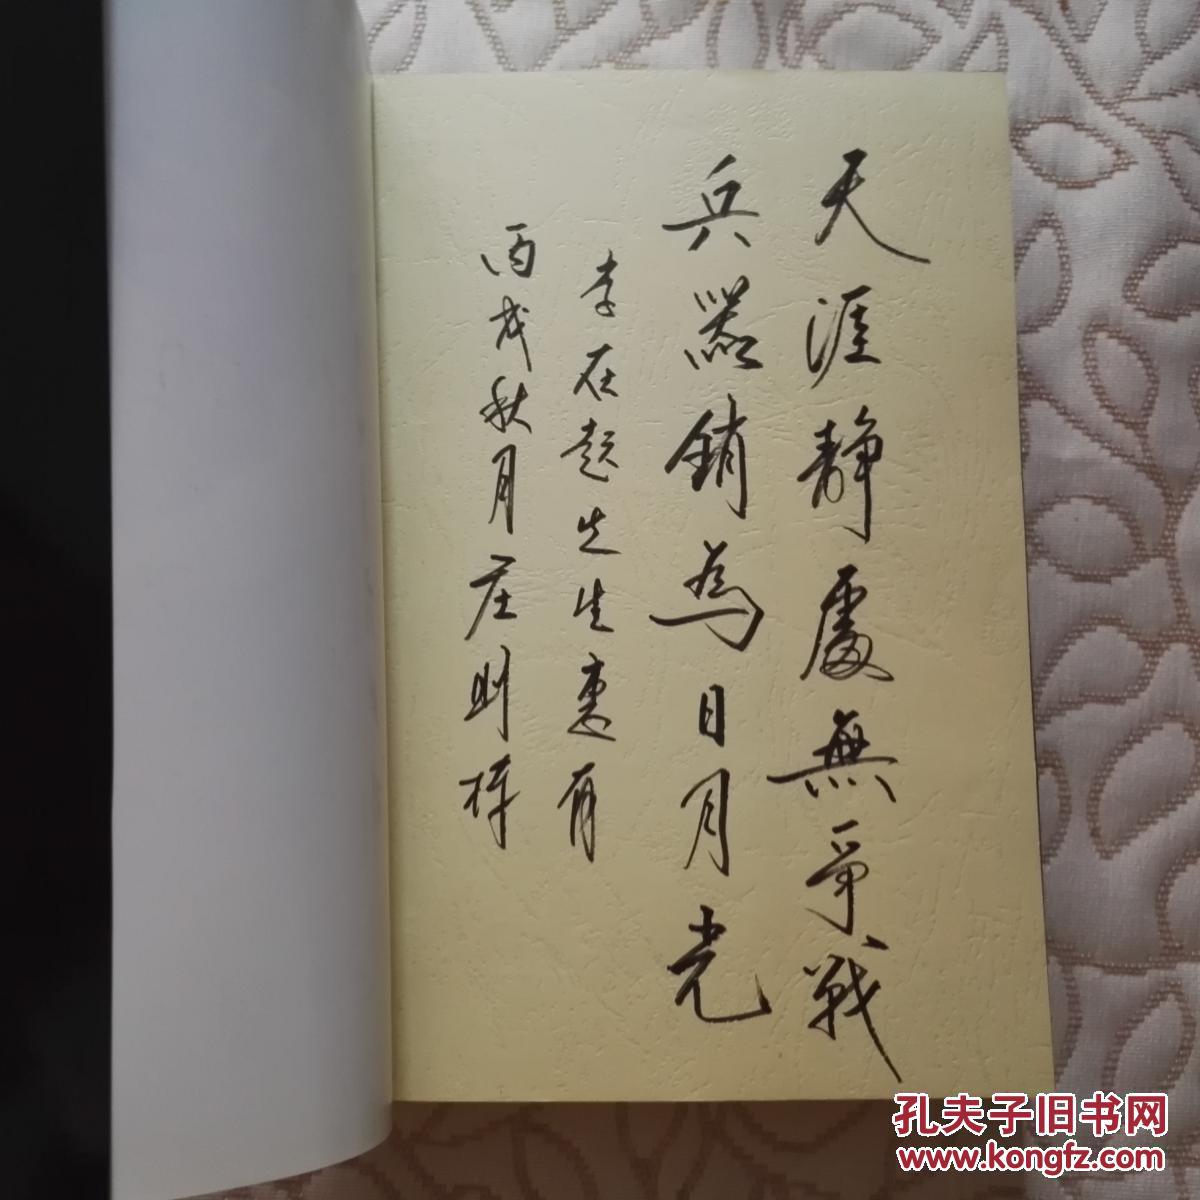 天涯靜處無爭戰
兵器銷為日月光
李在超先生惠存
丙戌秋月庄则棟
孔夫子旧书网
www.kongfz.com